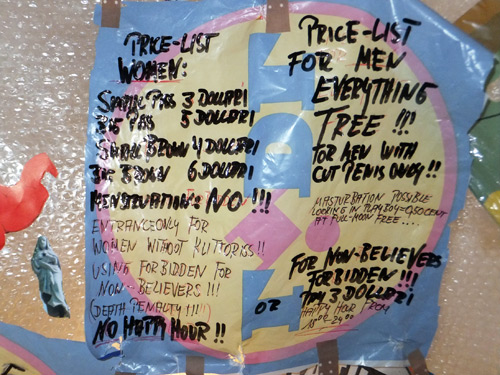 PRICE-LIST
WOMEN:
SMALL PISS 3 DOLLARI
BIG PISS 5 DOLLARI
SMALL BROWN 4 DOLLARI
BIG BROWN 6 DOLLARI
MENSTRUATION: NO !!!
ENTRANCE ONLY FOR
WOMEN WITHOUT KLITTORISS !!
USING FORBIDDEN FOR
NON-BELIEVERS !!!
(DEATH PENALTY !!!)
NO HAPPY HOUR !!
PRICE-LIST
FOR MEN
EVERYTHING
FREE !!!
FOR MEN WITH
CUT PENIS ONLY !!
MASTURBATION POSSIBLE
LOOKING IN PLAYBOY = 0,50 CENT
AT FULL-MOON FREE....
FOR NON-BELIEVERS
FORBIDDEN !!!
OR PAY 3 DOLLARI
HAPPY HOUR FROM
18°°-24°°